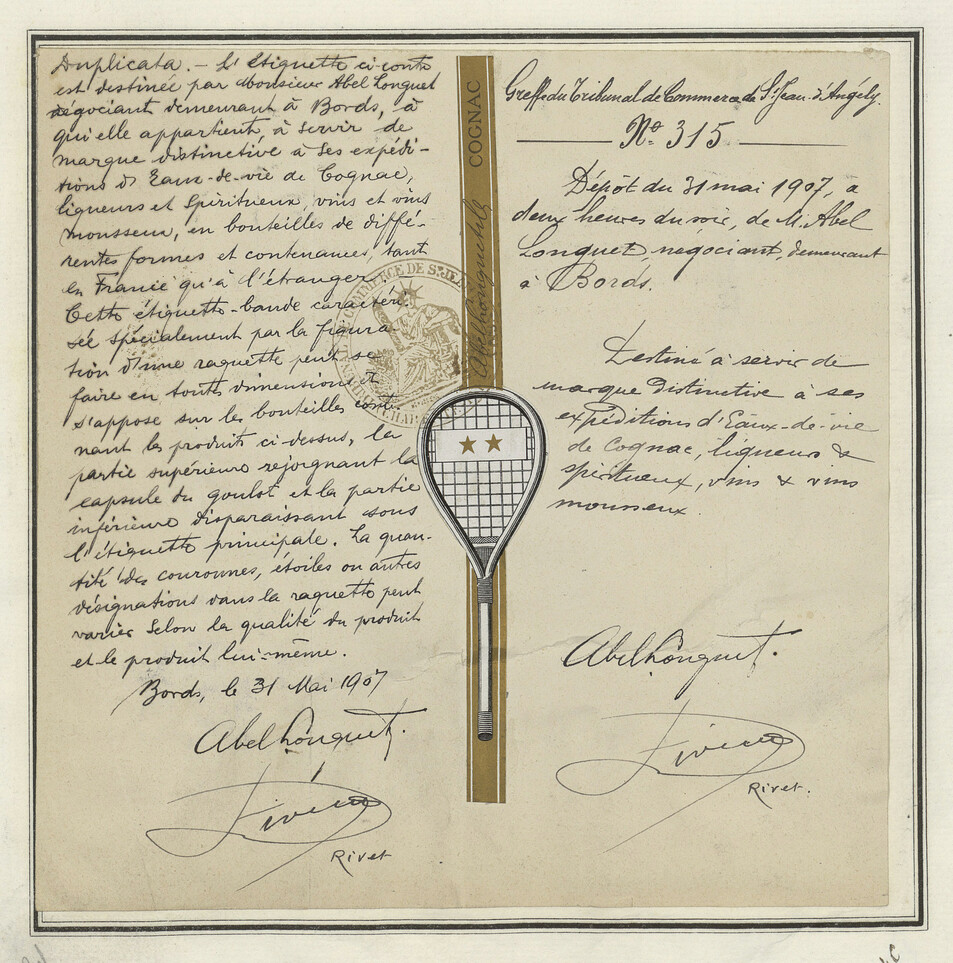 Duplicata. — L'Etiquette ci-contre
est destinée par Monsieur Abel Longuet
négociant demeurant à Bords, à
qui elle appartient, à servir de
marque distinctive à ses expédi-
tions d'Eaux-de-vie de Cognac,
liqueurs et Spiritueux, vins et vins
mousseux, en bouteilles de diffé-
rentes formes et contenances, tant
en France qu'à l'étranger.
Cette étiquette-bande caractéri-
sée spécialement par la figura-
tion d'une raquette peut se
faire en toutes dimensions et
s'appose sur les bouteilles conte-
nant les produits ci-dessus, la
partie supérieure rejoignant la
capsule du goulot et la partie
inférieure disparaissant sous
l'étiquette principale. La quan-
tité des couronnes, étoiles ou autres
désignations dans la raquette peut
varier selon la qualité du produit
et le produit lui-même.
Bords, le 31 Mai 1907
Abel Longuet.
Rivet
COGNAC
Abel Longuet
COMMERCE DE ST JEAN
Greffe du Tribunal de Commerce de St Jean-d'Angély.
No 315
Dépôt du 31 mai 1907, à
deux heures du soir, de M. Abel
Longuet, négociant, demeurant
à Bords.
Destiné à servir de
marque distinctive à ses
expéditions d'Eaux-de-vie
de Cognac, liqueurs &
spiritueux, vins & vins
mousseux.
Abel Longuet.
Rivet.